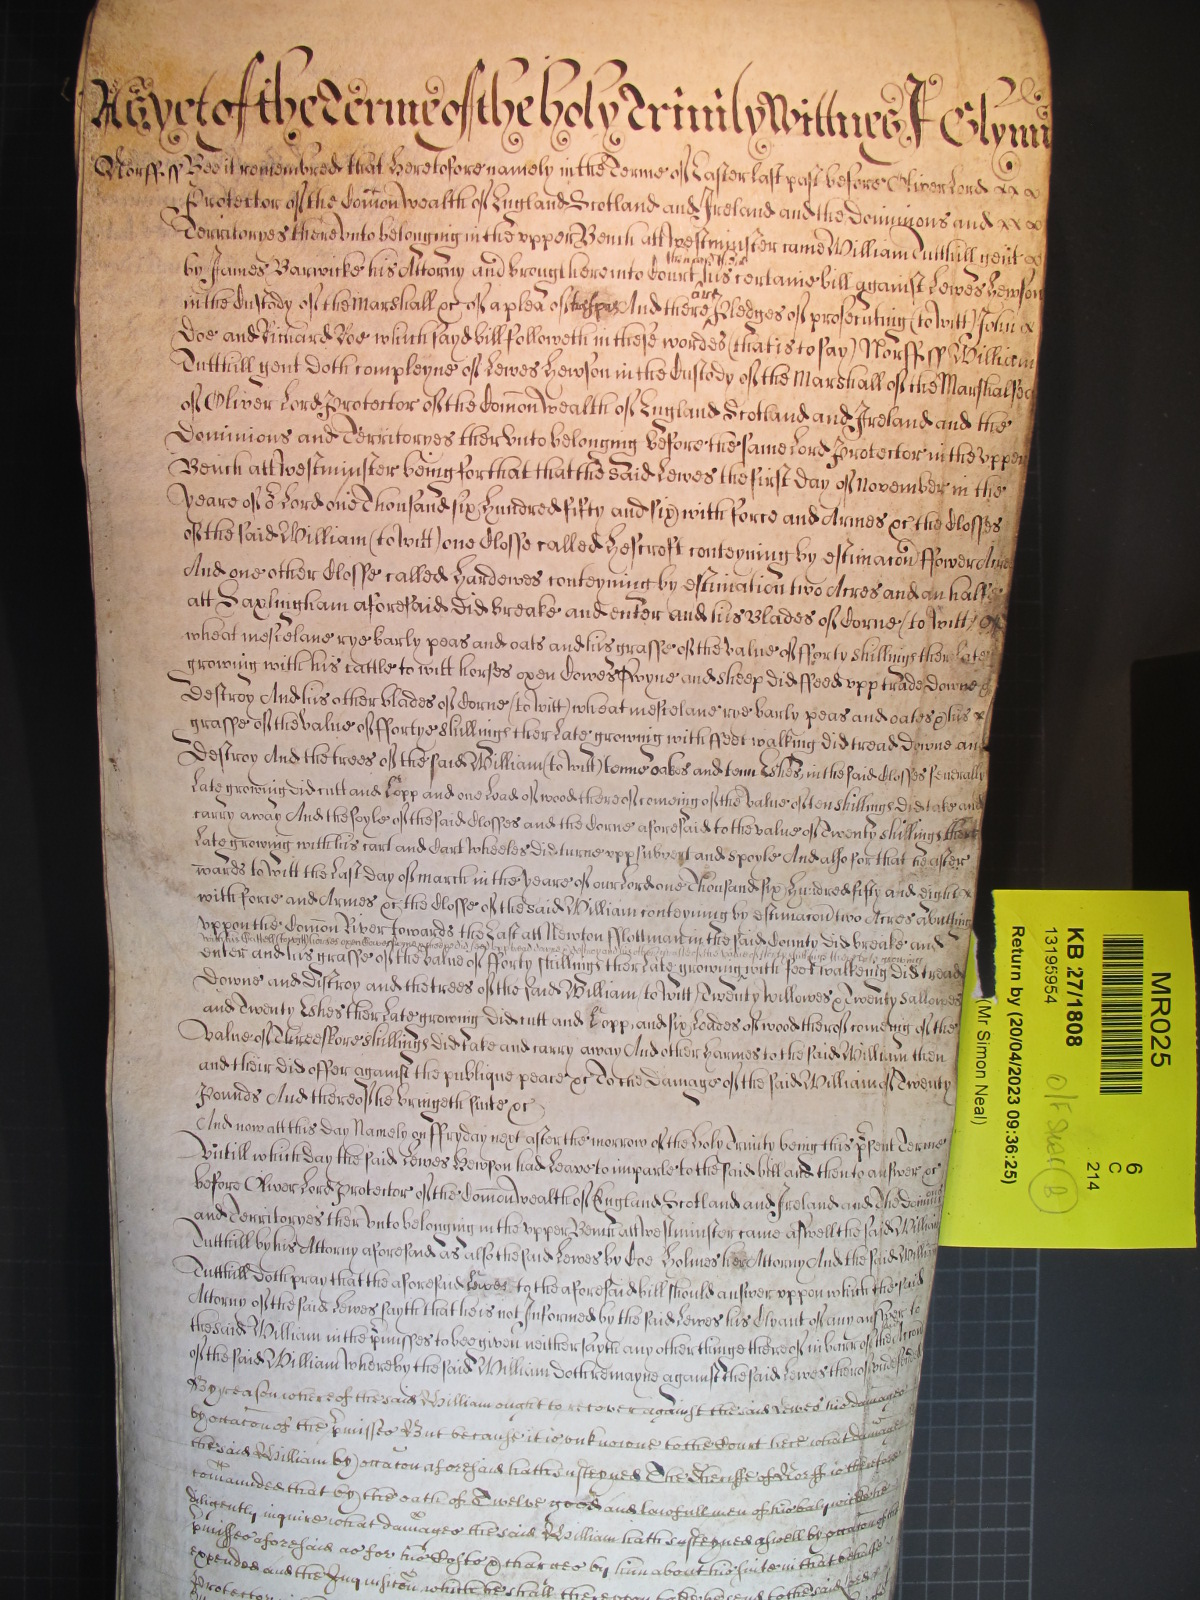 As yet of the Terme of the holy Trinity Wittnes J Glynn
Norff ss Bee it remembred that heretofore namely in the Terme of Easter last past before Oliver Lord
Protector of the Com̄on Wealth of England Scotland and Ireland and the Dominions and
Territoryes there vnto belonging in the vpper Bench att Westminster came William Tutthill gent
by James Barwicke his Attorny and brought here into Court then and there his certaine bill against Lewes Hewson
in the Custody of the Marshall &c of a plea of trespas And there are Pledges of prosecuting (to witt) John
Doe and Richard Roe which sayd bill followeth in these wordes (that is to say) Norff ss William
Tutthill gent doth compleyne of Lewes Hewson in the Custody of the Marshall of the Marshalsea
of Oliver Lord Protector of the Com̄on Wealth of England Scotland and Ireland and the
Dominions and Territoryes ther vnto belonging before the same Lord Protector in the vpper
Bench att Westminster being for that that the said Lewes the first Day of November in the
yeare of or Lord one Thousand six hundred fifty and six with force and Armes &c the Closses
of the said William (to witt) one Closse called Hescroft conteyning by estimacon ffower Acres
And one other Closse called Hardewes conteyning by estimation two Acres and an halfe
att Saxlingham aforesaid did breake and enter and his Blades of Corne (to witt) of
wheat mescelane rye barly peas and oats and his grasse of the value of fforty shillings ther late
growing with his cattle to witt horses oxen Cowes Swyne and sheep did ffeed vpp trade downe &
Destroy And his other blades of Corne (to witt) wheat mescelane rye barly peas and oates & his
grasse of the value of ffortye shillings ther late growing with ffeet walking did tread Downe and
Destroy And the trees of the said William (to witt) tenne oakes and tenn Eshes in the said Closses severally
late growing did cutt and Lopp and one Load of wood thereof comeing of the value of ten shillings did take and
carry away And the soyle of the said Closses and the Corne aforesaid to the value of Twenty shillings there
late growing with his cart and Cart wheeles did turne vpp subvert and spoyle And also for that he after
wards to witt the last day of march in the yeare of our Lord one Thousand six hundred fifty and eight
with force and Armes &c the Closse of the said William conteyning by estimacon two Acres abutting
vppon the Com̄on River towards the East att Newton fflottman in the said County did breake and
enter and his grasse of the value of fforty shillings ther late growing with foot walkeing did tread
Downe and Distroy and the trees of the said William (to witt) Twenty willowes & Twenty sallowes
and Twenty Eshes ther late growing did cutt and Lopp and six Loades of wood therof comeing of the
value of Threescore shillings did take and carry away And other harmes to the said William then
and their did offer against the publique peace &c To the Damage of the said William of Twenty
Pounds And thereof he bringeth suite &c
And now att this day Namely on ffryday next after the morrow of the holy Trinity being this p̄sent Terme
Vntill which day the said Lewes Hewson had Leave to imparle to the said bill and then to answer &c
before Oliver Lord Protector of the Com̄on Wealth of England Scotland and Ireland and the Dominions
and Territoryes ther vnto belonging in the vpper Bench att Westminster came aswell the said William
Tutthill by his Attorny aforesaid as also the said Lewes by Coe Holmes his Attorny And the said William
Tutthill Doth pray that the aforesaid Lewes to the aforesaid bill should answer vppon which the said
Attorny of the said Lewes sayth that he is not Informed by the said Lewes his Clyant of any answer to
the said William in the p̄misses to bee given neither sayth any other thinge thereof in barr of the Accon
of the said William whereby the said William doth remayne against the said Lewes therof vndefended
By reason where of the said William ought to recover against the said Lewes his damages
by occacon of the p̄misses But because it is vnknowne to the Court here what damages
the said William by occacon aforesaid hath susteyned The Sheriffe of Norff is therefore
com̄aunded that by the oath of Twelve good and lawfull men of his balywicke he
diligently inquire what damages the said William hath susteyned aswell by occacon of the
p̄misses aforesaid as for his Costs & charges by him about his suite in that behalfe
expended and the Inquisicon which he shall thereupon take he send to the said Lord
Protector
MR025
6
C
214
KB 27/1808
13195954
Return by (20/04/2023 09:36:25)
(Mr Simon Neal)